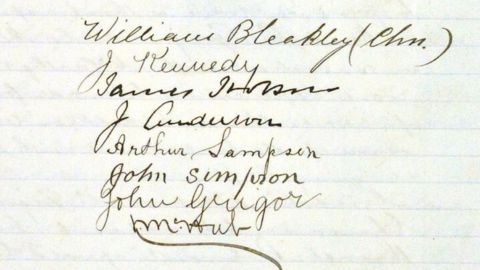 William Bleakley (Chn.)
J Kennedy
James
J Anderson
Arthur Sampson
John Simpson
John Grigor